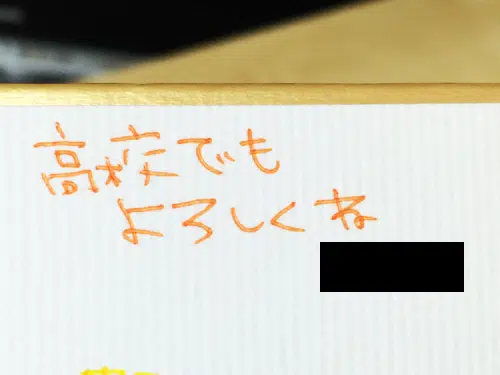 高校でも
よろしくね